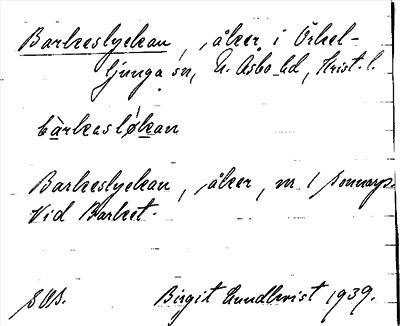 Barkeslyckan, åker i Örkel-
ljunga sn, N. Åsbo hd, Krist. l.
bàrkaslø̀kan
Barkeslyckan, åker, m 1 Sonnarp.
Vid Barket.
Birgit Lundkvist 1939.